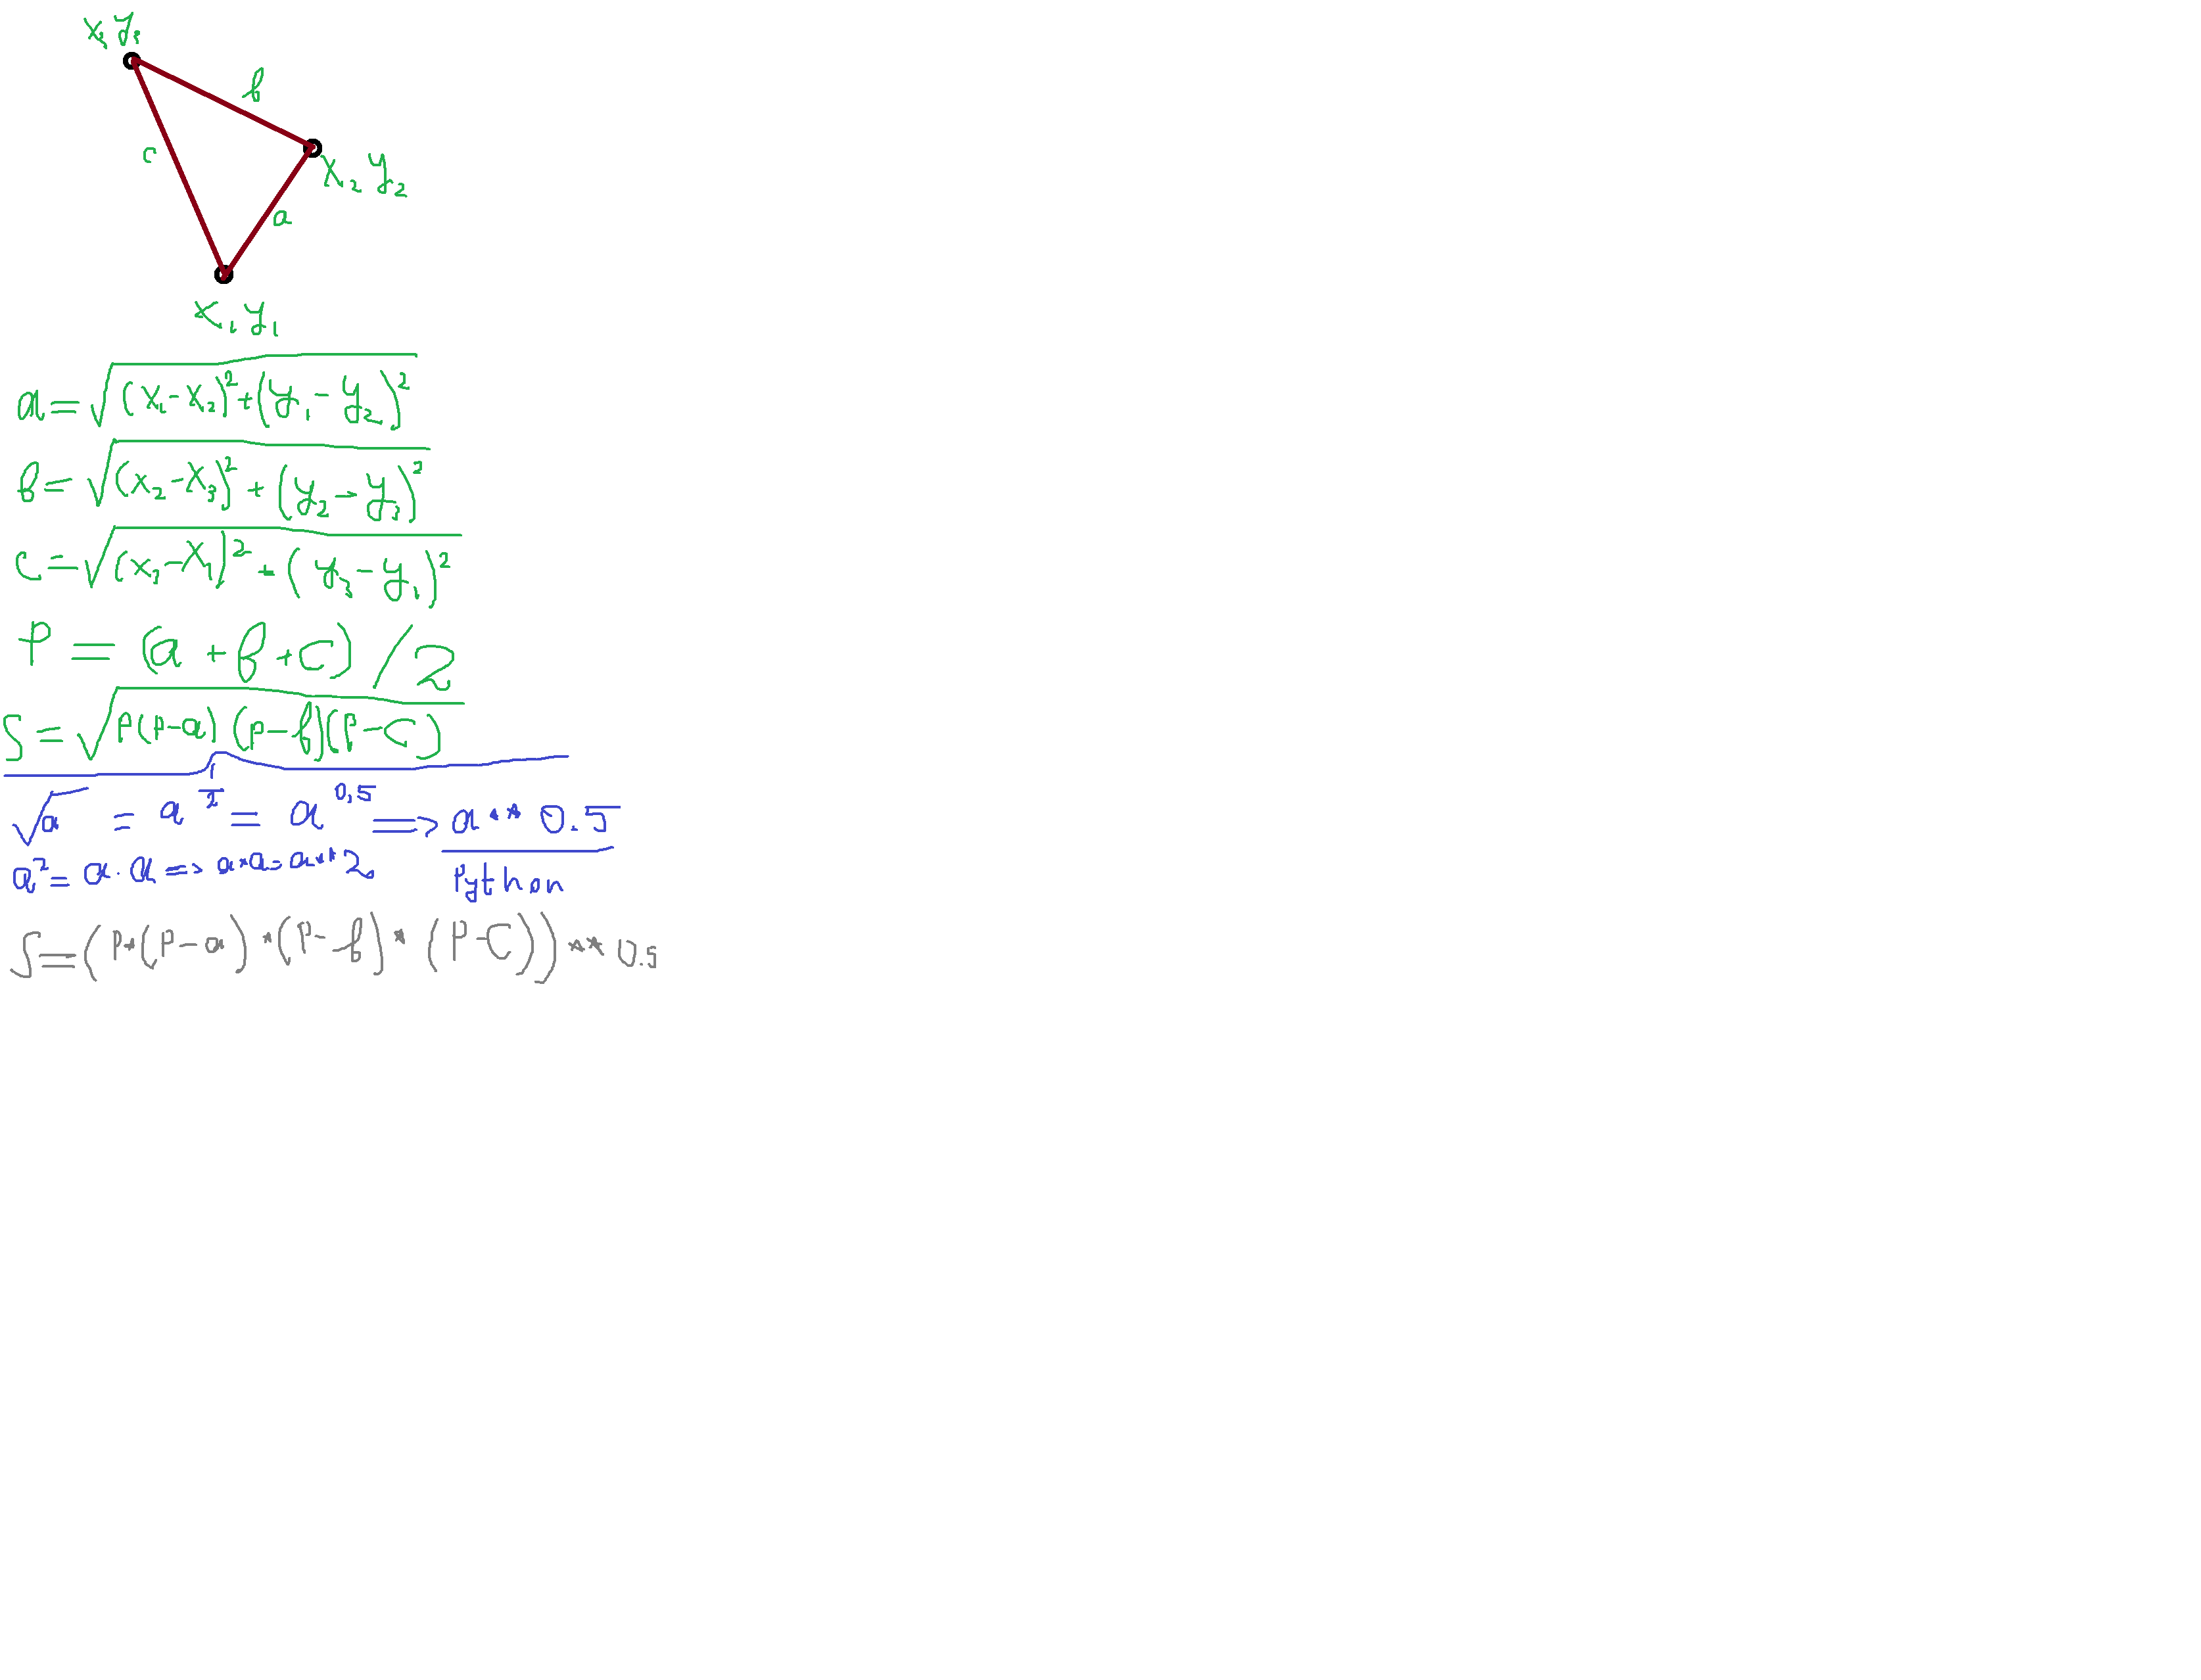 x₃ y₃
b
c
x₂ y₂
a
x₁ y₁
a = √((x₁ - x₂)² + (y₁ - y₂)²)
b = √((x₂ - x₃)² + (y₂ - y₃)²)
c = √((x₃ - x₁)² + (y₃ - y₁)²)
P = (a + b + c) / 2
S = √(P(P-a)(P-b)(P-c))
√a = a^(1/2) = a^(0,5) => a ** 0.5
a² = a · a => a*a = a**2
Python
S = (P*(P-a)*(P-b)*(P-c))**0.5